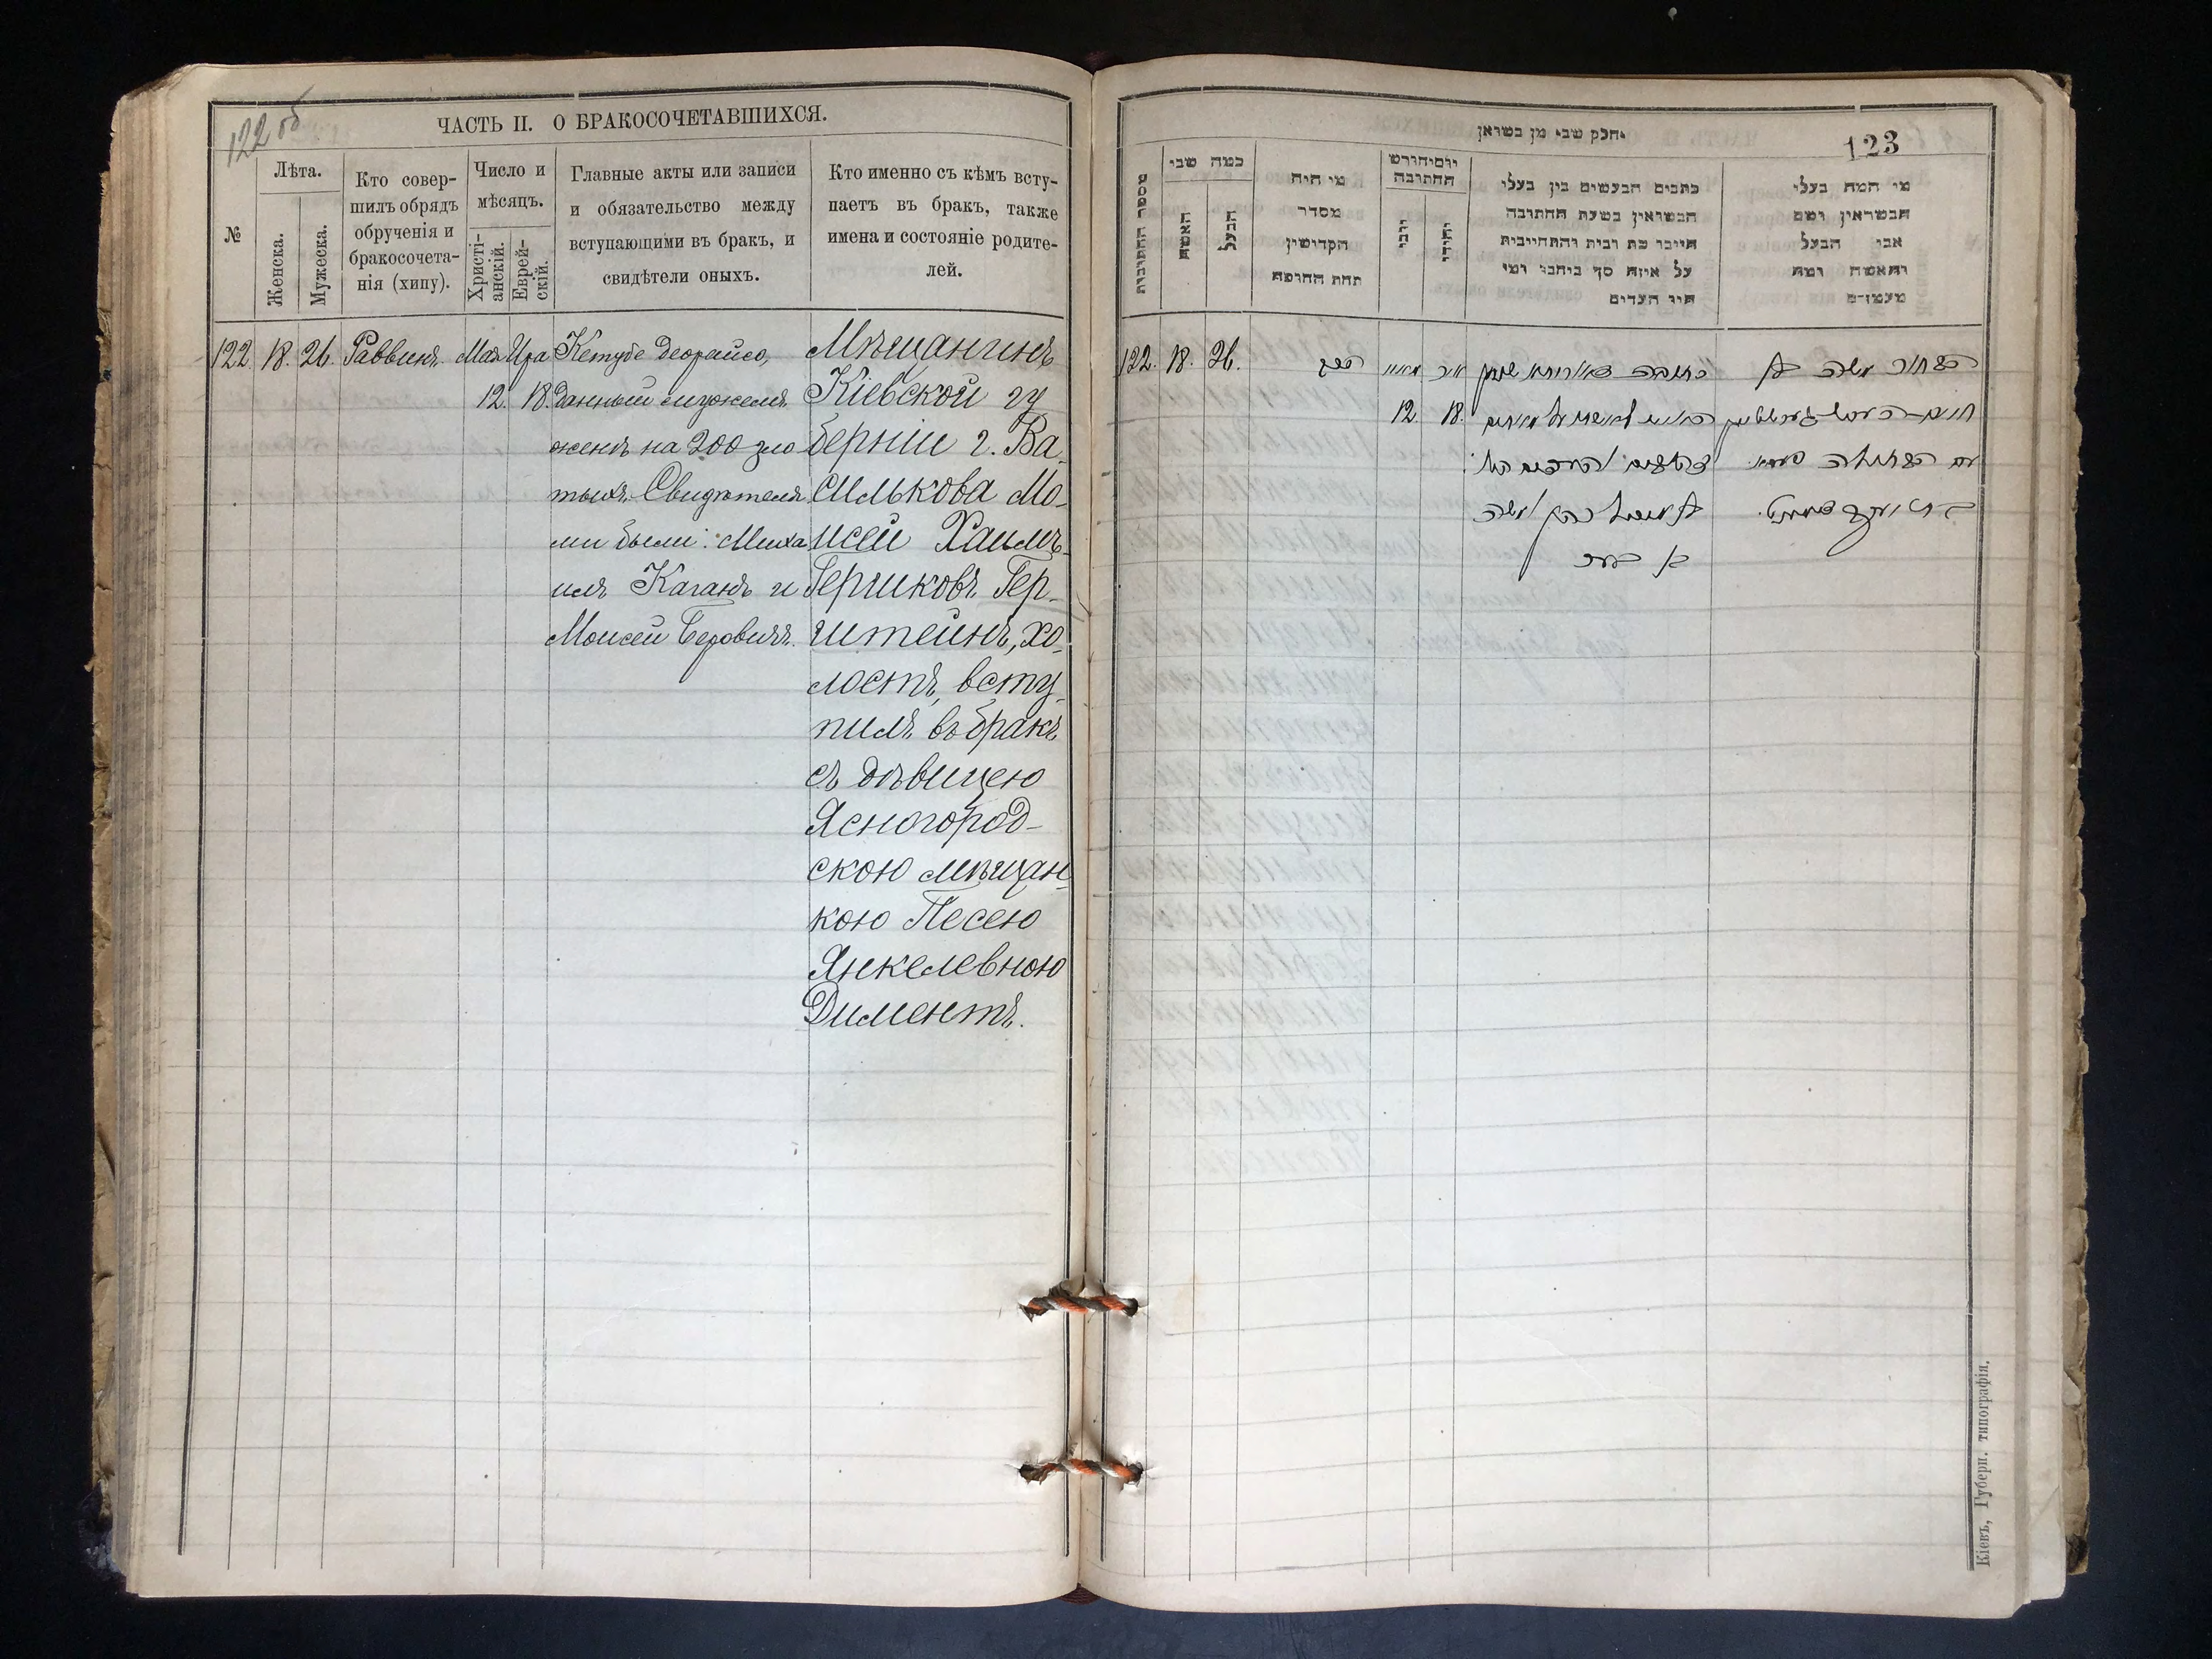 122 об
ЧАСТЬ II. О БРАКОСОЧЕТАВШИХСЯ.
№
Лѣта.
Женска.
Мужеска.
Кто совер-
шилъ обрядъ
обрученія и
бракосочета-
нія (хипу).
Число и
мѣсяцъ.
Христі-
анскій.
Еврей-
скій.
Главные акты или записи
и обязательство между
вступающими въ бракъ, и
свидѣтели оныхъ.
Кто именно съ кѣмъ всту-
паетъ въ бракъ, также
имена и состояніе родите-
лей.
122. 18. 26. Раввинъ. Мая Ира
12. 18.
Кетубе деорайсо,
данный мужемъ
женѣ на 200 зло
тыхъ. Свидѣтеля
ми были: Миха
илъ Каганъ и
Моисей Беровичъ.
Мѣщанинъ
Кіевской гу
берніи г. Ва-
силькова Мо-
исей Хаимъ-
Гершковъ Гер-
штейнъ, хо-
лостъ, всту-
пилъ въ бракъ
съ дѣвицею
Ясногород-
скою мѣщан-
кою Песею
Янкелевною
Диментъ.
123
יחלק שבי מן בשואן
מספר החתונות
כמה שבי
האשה
הבעל
מי היה
מסדר
הקדושין
תחת החופה
יום וחורש
החתובה
כתבים הבעשים בין בעלי
הבשואין בשעת החתובה
על איזה סך ביחבו ומי
היו העדים
מי המה בעלי
הבשואין ושם
אבי הבעל
והאשה ומה
מעמדם
122. 18. 26.
12. 18.
הבחור משה בן
עם הבתולה פעסא
Кіевъ, Губерн. типографія.